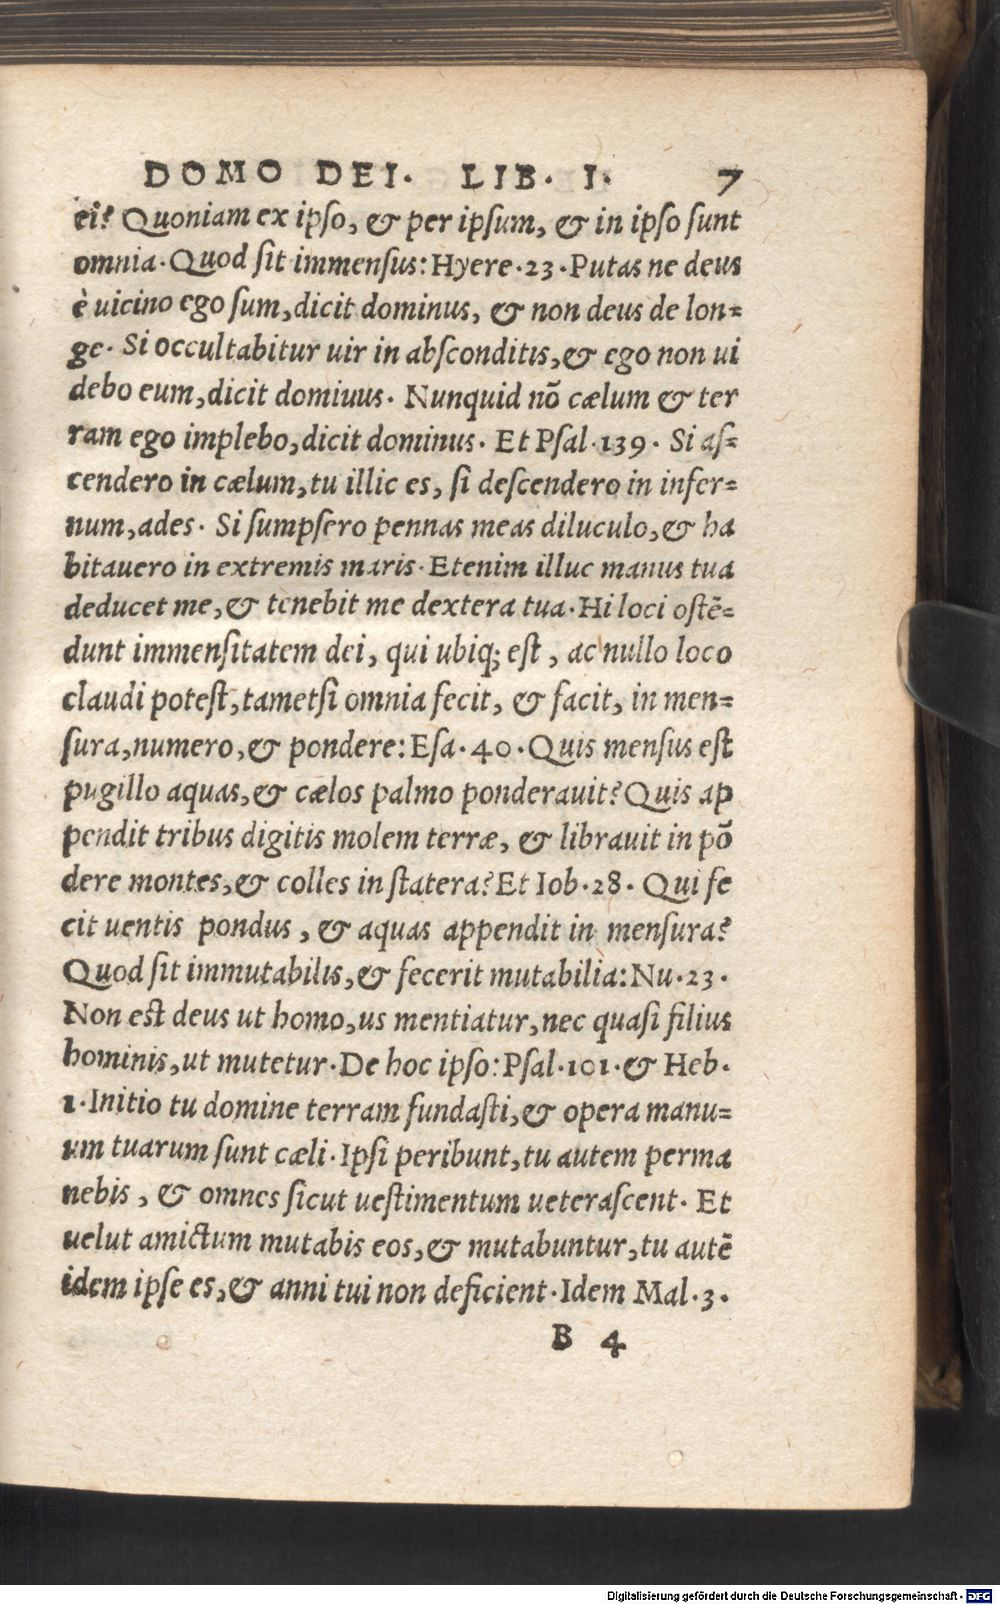 DOMO DEI. LIB. I. 7
ei? Quoniam ex ipso, & per ipsum, & in ipso sunt
omnia. Quod sit immensus: Hyere. 23. Putas ne deus
è uicino ego sum, dicit dominus, & non deus de lon=
ge. Si occultabitur uir in absconditis, & ego non ui
debo eum, dicit domiuus. Nunquid nō cælum & ter
ram ego implebo, dicit dominus. Et Psal. 139. Si as=
cendero in cælum, tu illic es, si descendero in infer=
num, ades. Si sumpsero pennas meas diluculo, & ha
bitauero in extremis maris. Etenim illuc manus tua
deducet me, & tenebit me dextera tua. Hi loci ostē=
dunt immensitatem dei, qui ubiq; est, ac nullo loco
claudi potest, tametsi omnia fecit, & facit, in men=
sura, numero, & pondere: Esa. 40. Quis mensus est
pugillo aquas, & cælos palmo ponderauit? Quis ap
pendit tribus digitis molem terræ, & librauit in pō
dere montes, & colles in statera? Et Iob. 28. Qui fe
cit uentis pondus, & aquas appendit in mensura?
Quod sit immutabilis, & fecerit mutabilia: Nu. 23.
Non est deus ut homo, us mentiatur, nec quasi filius
hominis, ut mutetur. De hoc ipso: Psal. 101. & Heb.
1. Initio tu domine terram fundasti, & opera manu=
um tuarum sunt cæli. Ipsi peribunt, tu autem perma
nebis, & omnes sicut uestimentum ueterascent. Et
uelut amictum mutabis eos, & mutabuntur, tu autē
idem ipse es, & anni tui non deficient. Idem Mal. 3.
B 4
Digitalisierung gefördert durch die Deutsche Forschungsgemeinschaft - DFG